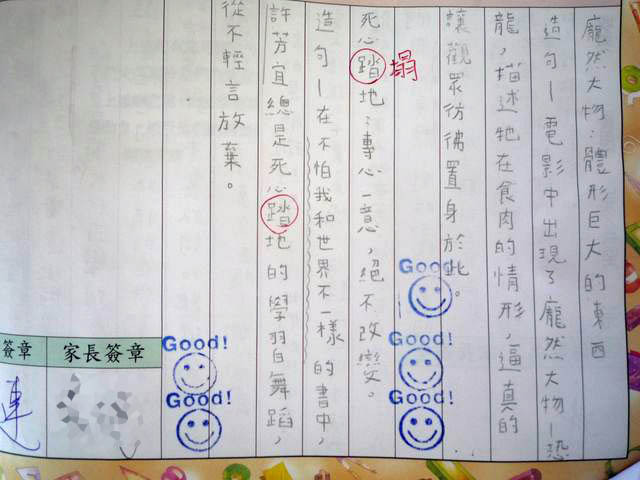 龐然大物：體形巨大的東西
造句－電影中出現了龐然大物－恐
龍，描述牠在食肉的情形，逼真的
讓觀眾彷彿置身於此。
死心踏地：專心一意，絕不改變。
塌
造句－在不怕我和世界不一樣的書中，
許芳宜總是死心踏地的學習舞蹈，
從不輕言放棄。
Good!
Good!
Good!
Good!
Good!
家長簽章
簽章
連